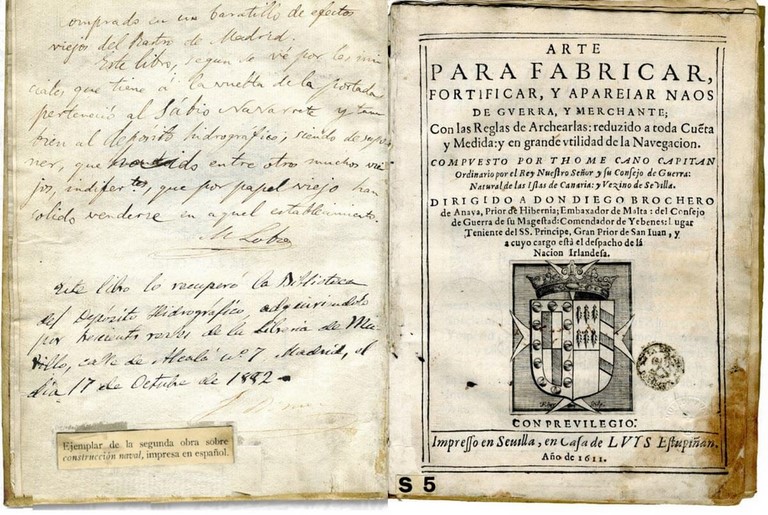 omprado en un baratillo de efectos
viejos del Rastro de Madrid.
Este libro, segun se vé por las ini
ciales que tiene á la vuelta de la portada
perteneció al Sabio Navarrete y tam
bien al deposito hidrográfico, siendo de supo
ner, que entre otros muchos vie
jos, que por papel viejo han
solido venderse en aquel establecimiento.
Este libro lo recuperó la Biblioteca
del Deposito Hidrográfico, adquiriéndolo
por reales de la Libreria de Mu
rillo, calle de Alcalá nº 7 Madrid, el
dia 17 de Octubre de 1882
Ejemplar de la segunda obra sobre
construcción naval, impresa en español.
ARTE
PARA FABRICAR,
FORTIFICAR, Y APAREIAR NAOS
DE GVERRA, Y MERCHANTE;
Con las Reglas de Archearlas: reduzido a toda Cuẽta
y Medida: y en grande vtilidad de la Navegacion.
COMPVESTO POR THOME CANO CAPITAN
Ordinario por el Rey Nuestro Señor y su Consejo de Guerra:
Natural de las Islas de Canaria: y Vezino de Sevilla.
DIRIGIDO A DON DIEGO BROCHERO
de Anaya, Prior de Hibernia; Embaxador de Malta: del Consejo
de Guerra de su Magestad: Comendador de Yebenes: Lugar
Teniente del SS. Principe, Gran Prior de San Iuan, y
a cuyo cargo está el despacho de la
Nacion Irlandesa.
CON PREVILEGIO.
Impresso en Seuilla, en Casa de LVYS Estupiñan.
Año de 1611.
S 5